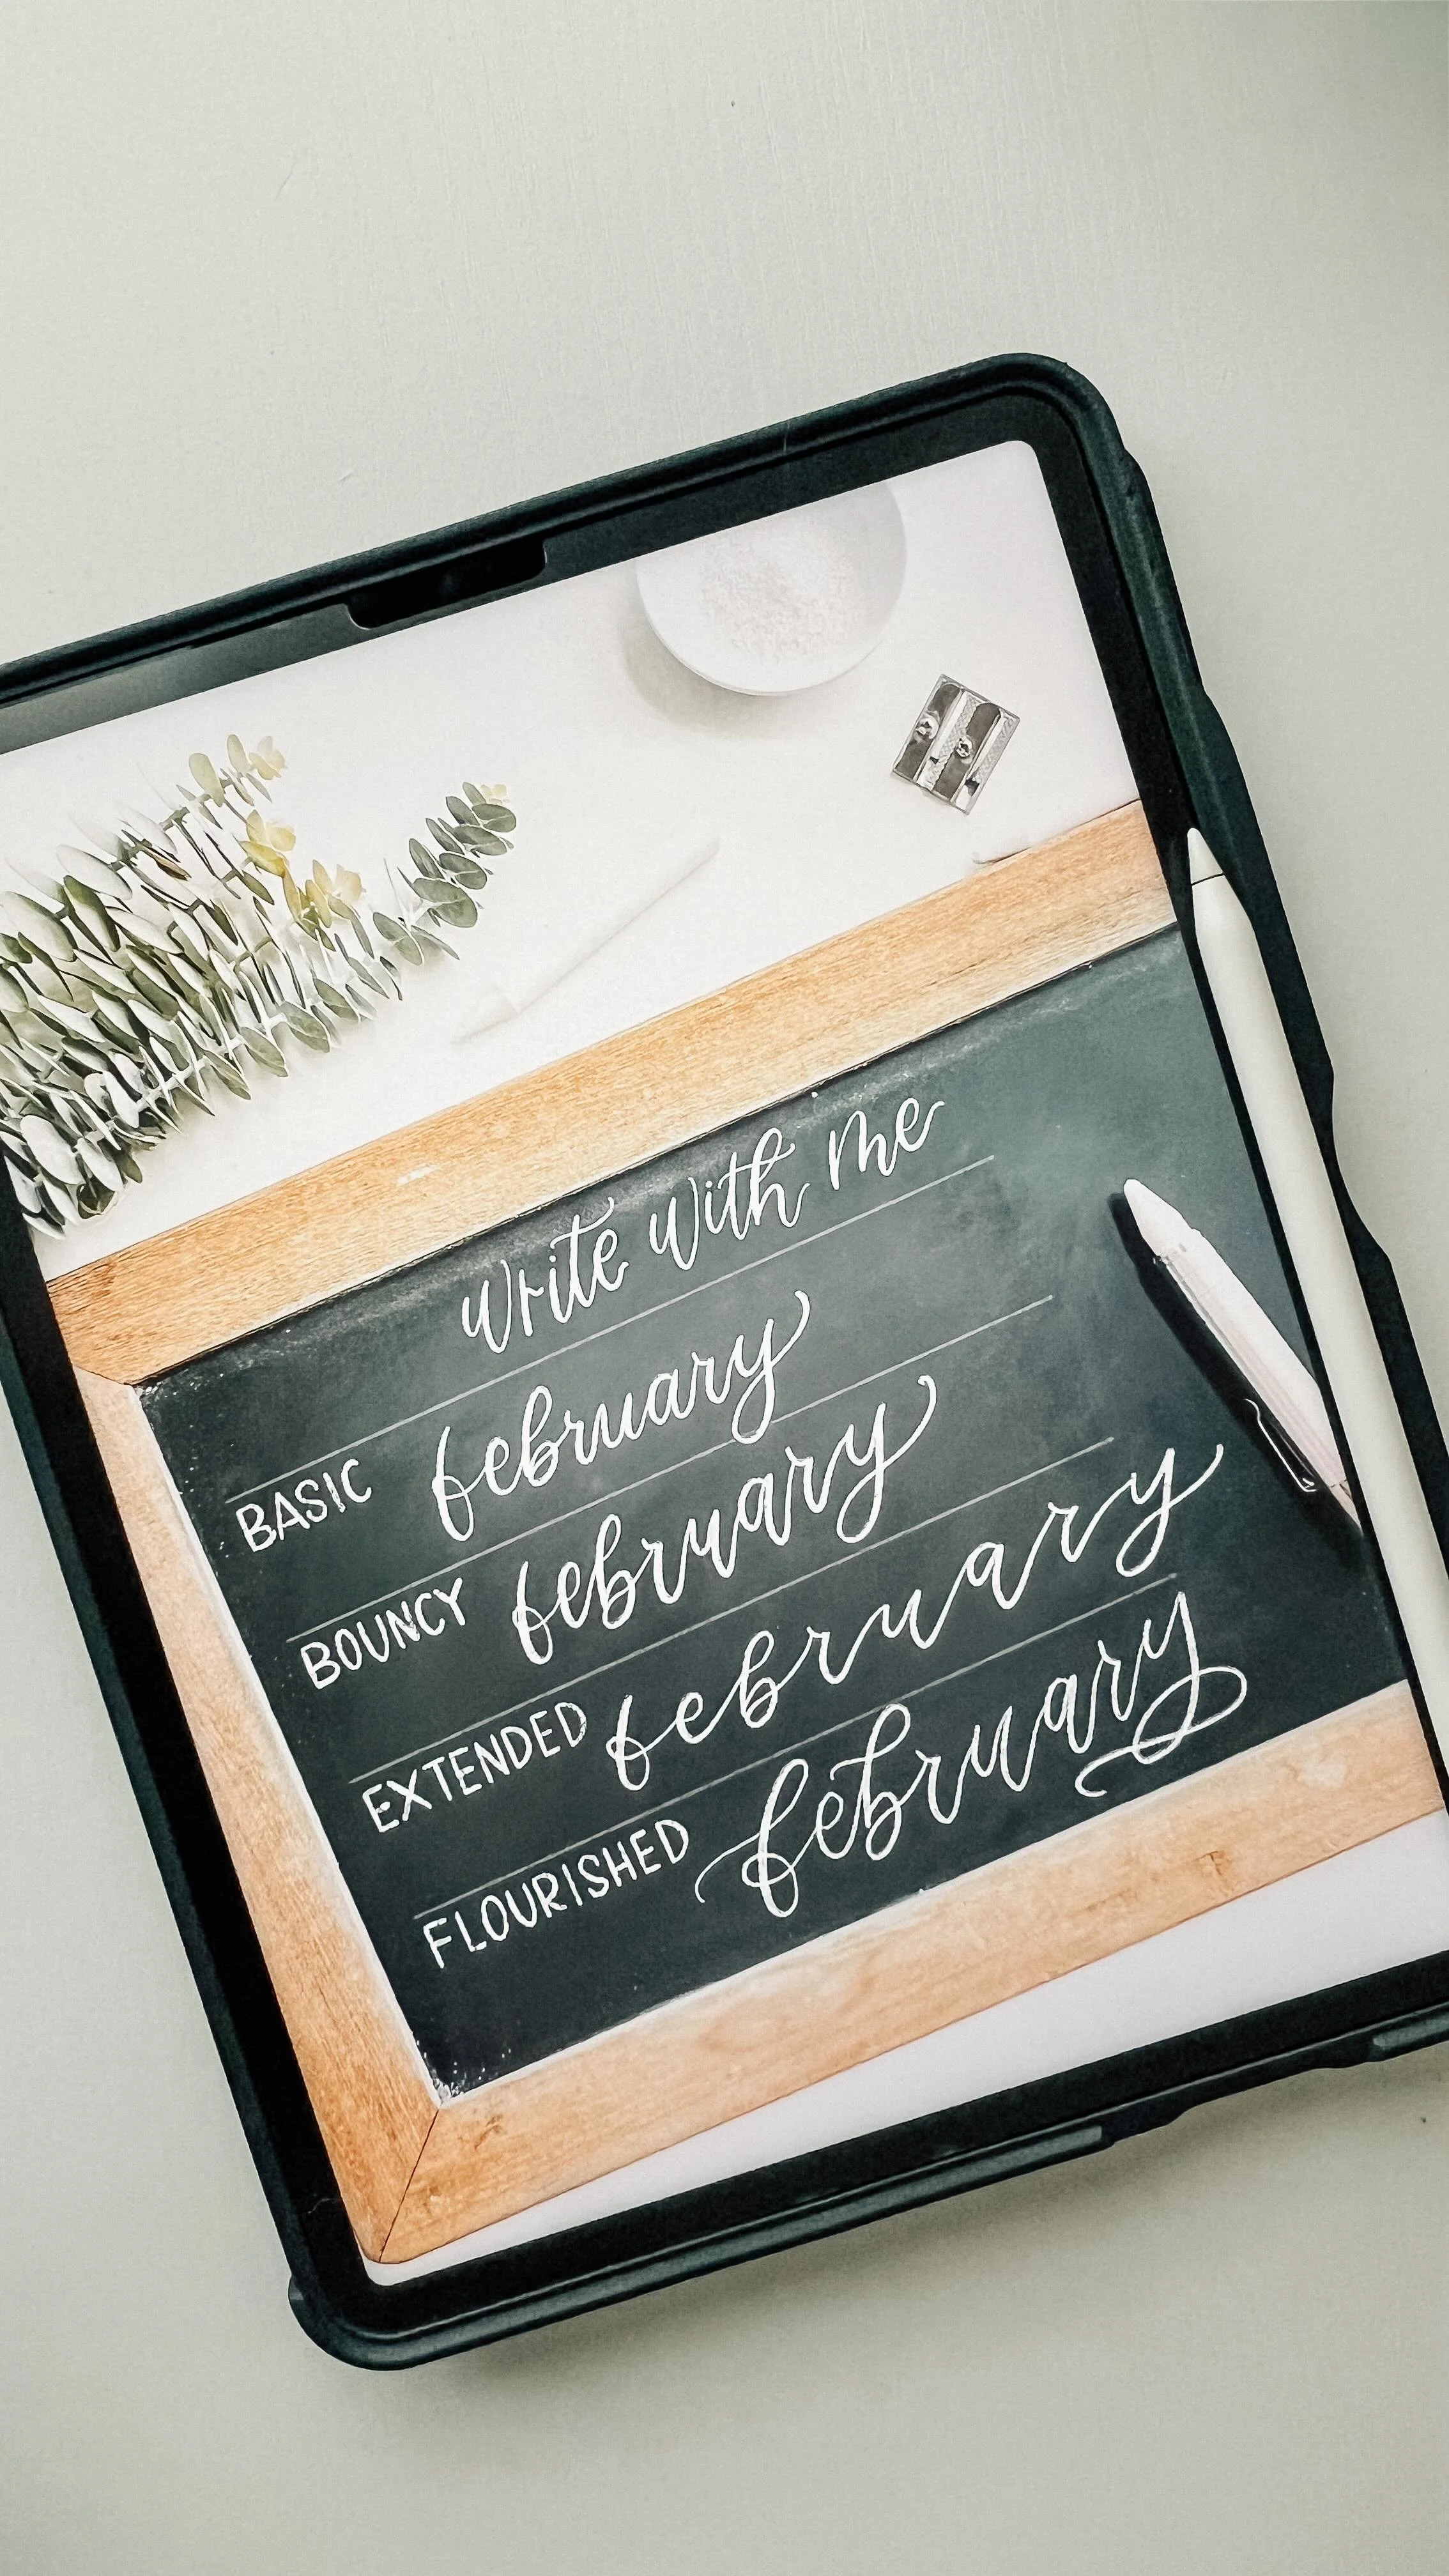 write with me
BASIC february
BOUNCY february
EXTENDED february
FLOURISHED february